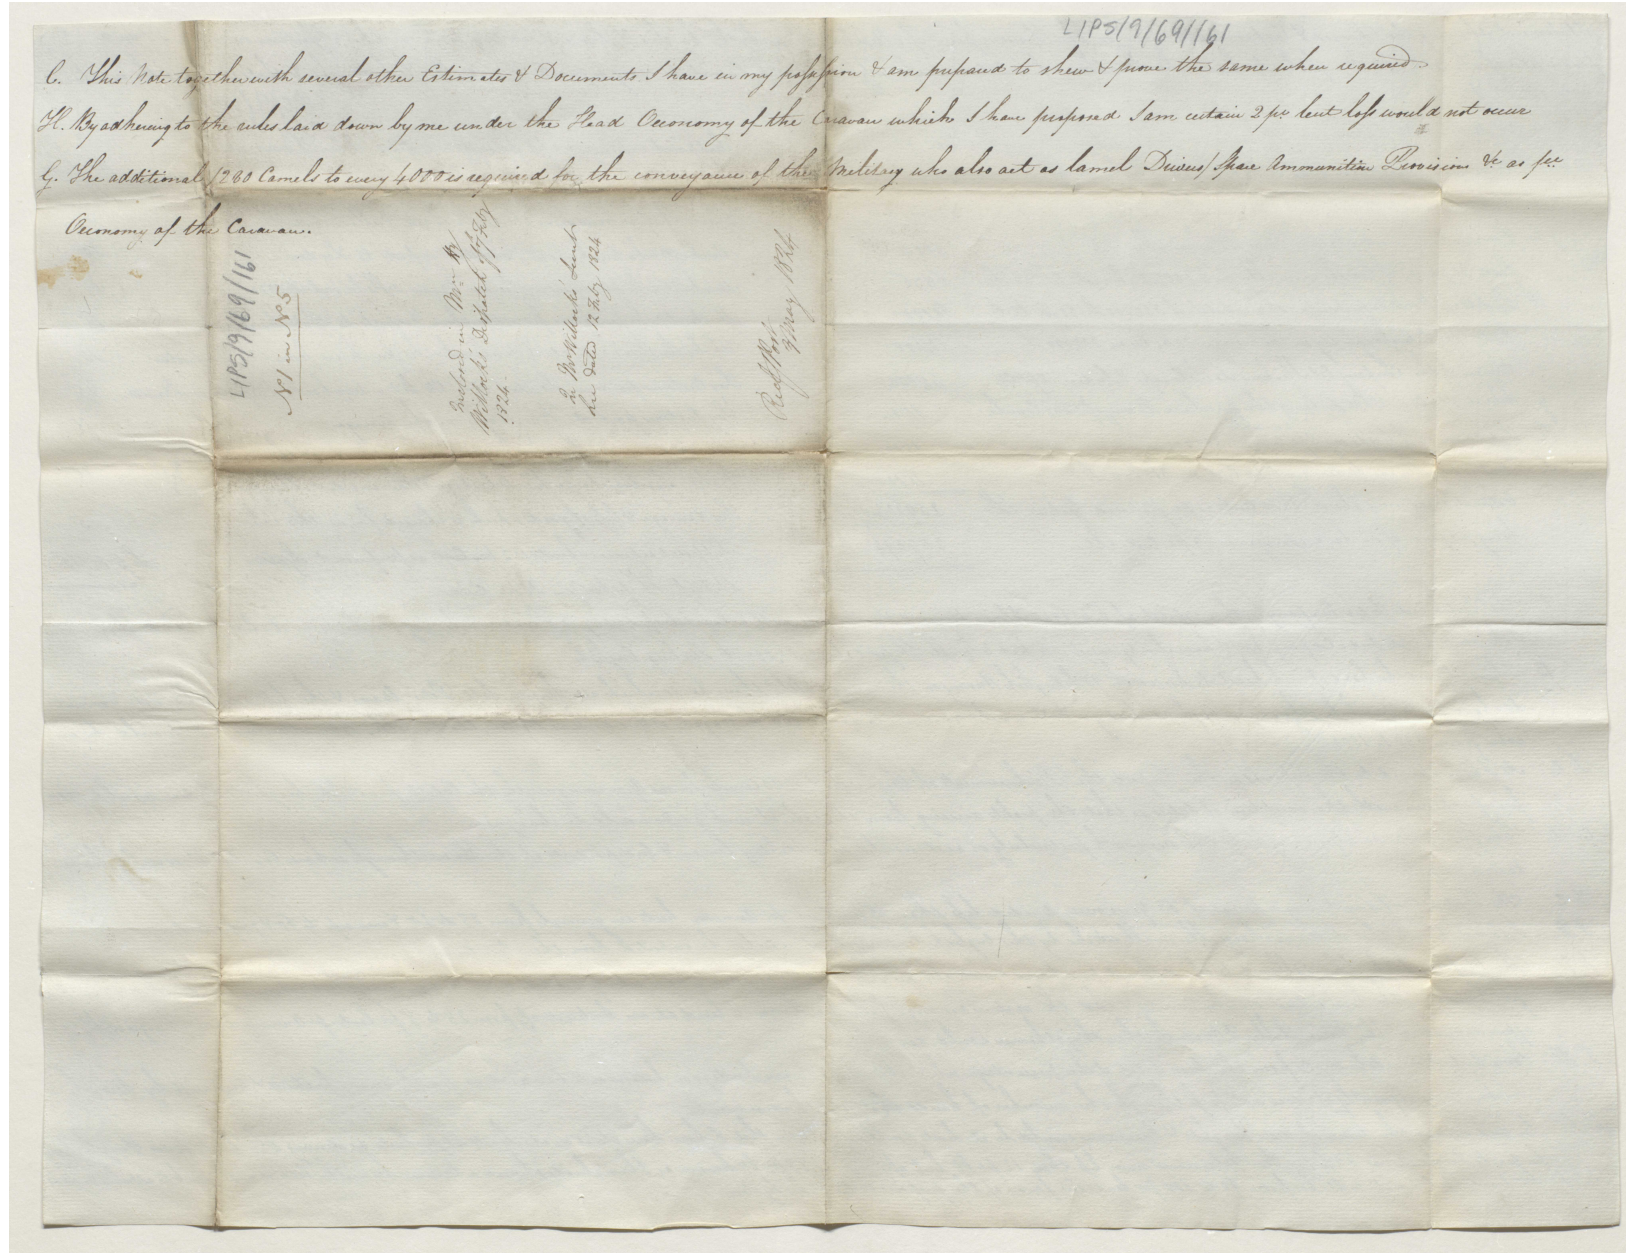 L/PS/9/69/161
C. This Note together with several other Estimates & Documents I have in my possession & am prepared to shew & prove the same when required.
H. By adhering to the rules laid down by me under the Head Oeconomy of the Caravan which I have proposed I am certain 2 pr Cent loss would not occur
G. The additional 1280 Camels to every 4000 is required for the conveyance of the Military who also act as Camel Drivers / Spare Ammunition Provision &c as per
Oeconomy of the Caravan.
L/PS/9/69/161
No 1 in No 5
Inclosed in Mr. Hy
Willock's Dispatch of 7 Feby
1824.
In Mr Willock's
dated 12 Feby 1824
Recd
9 May 1824